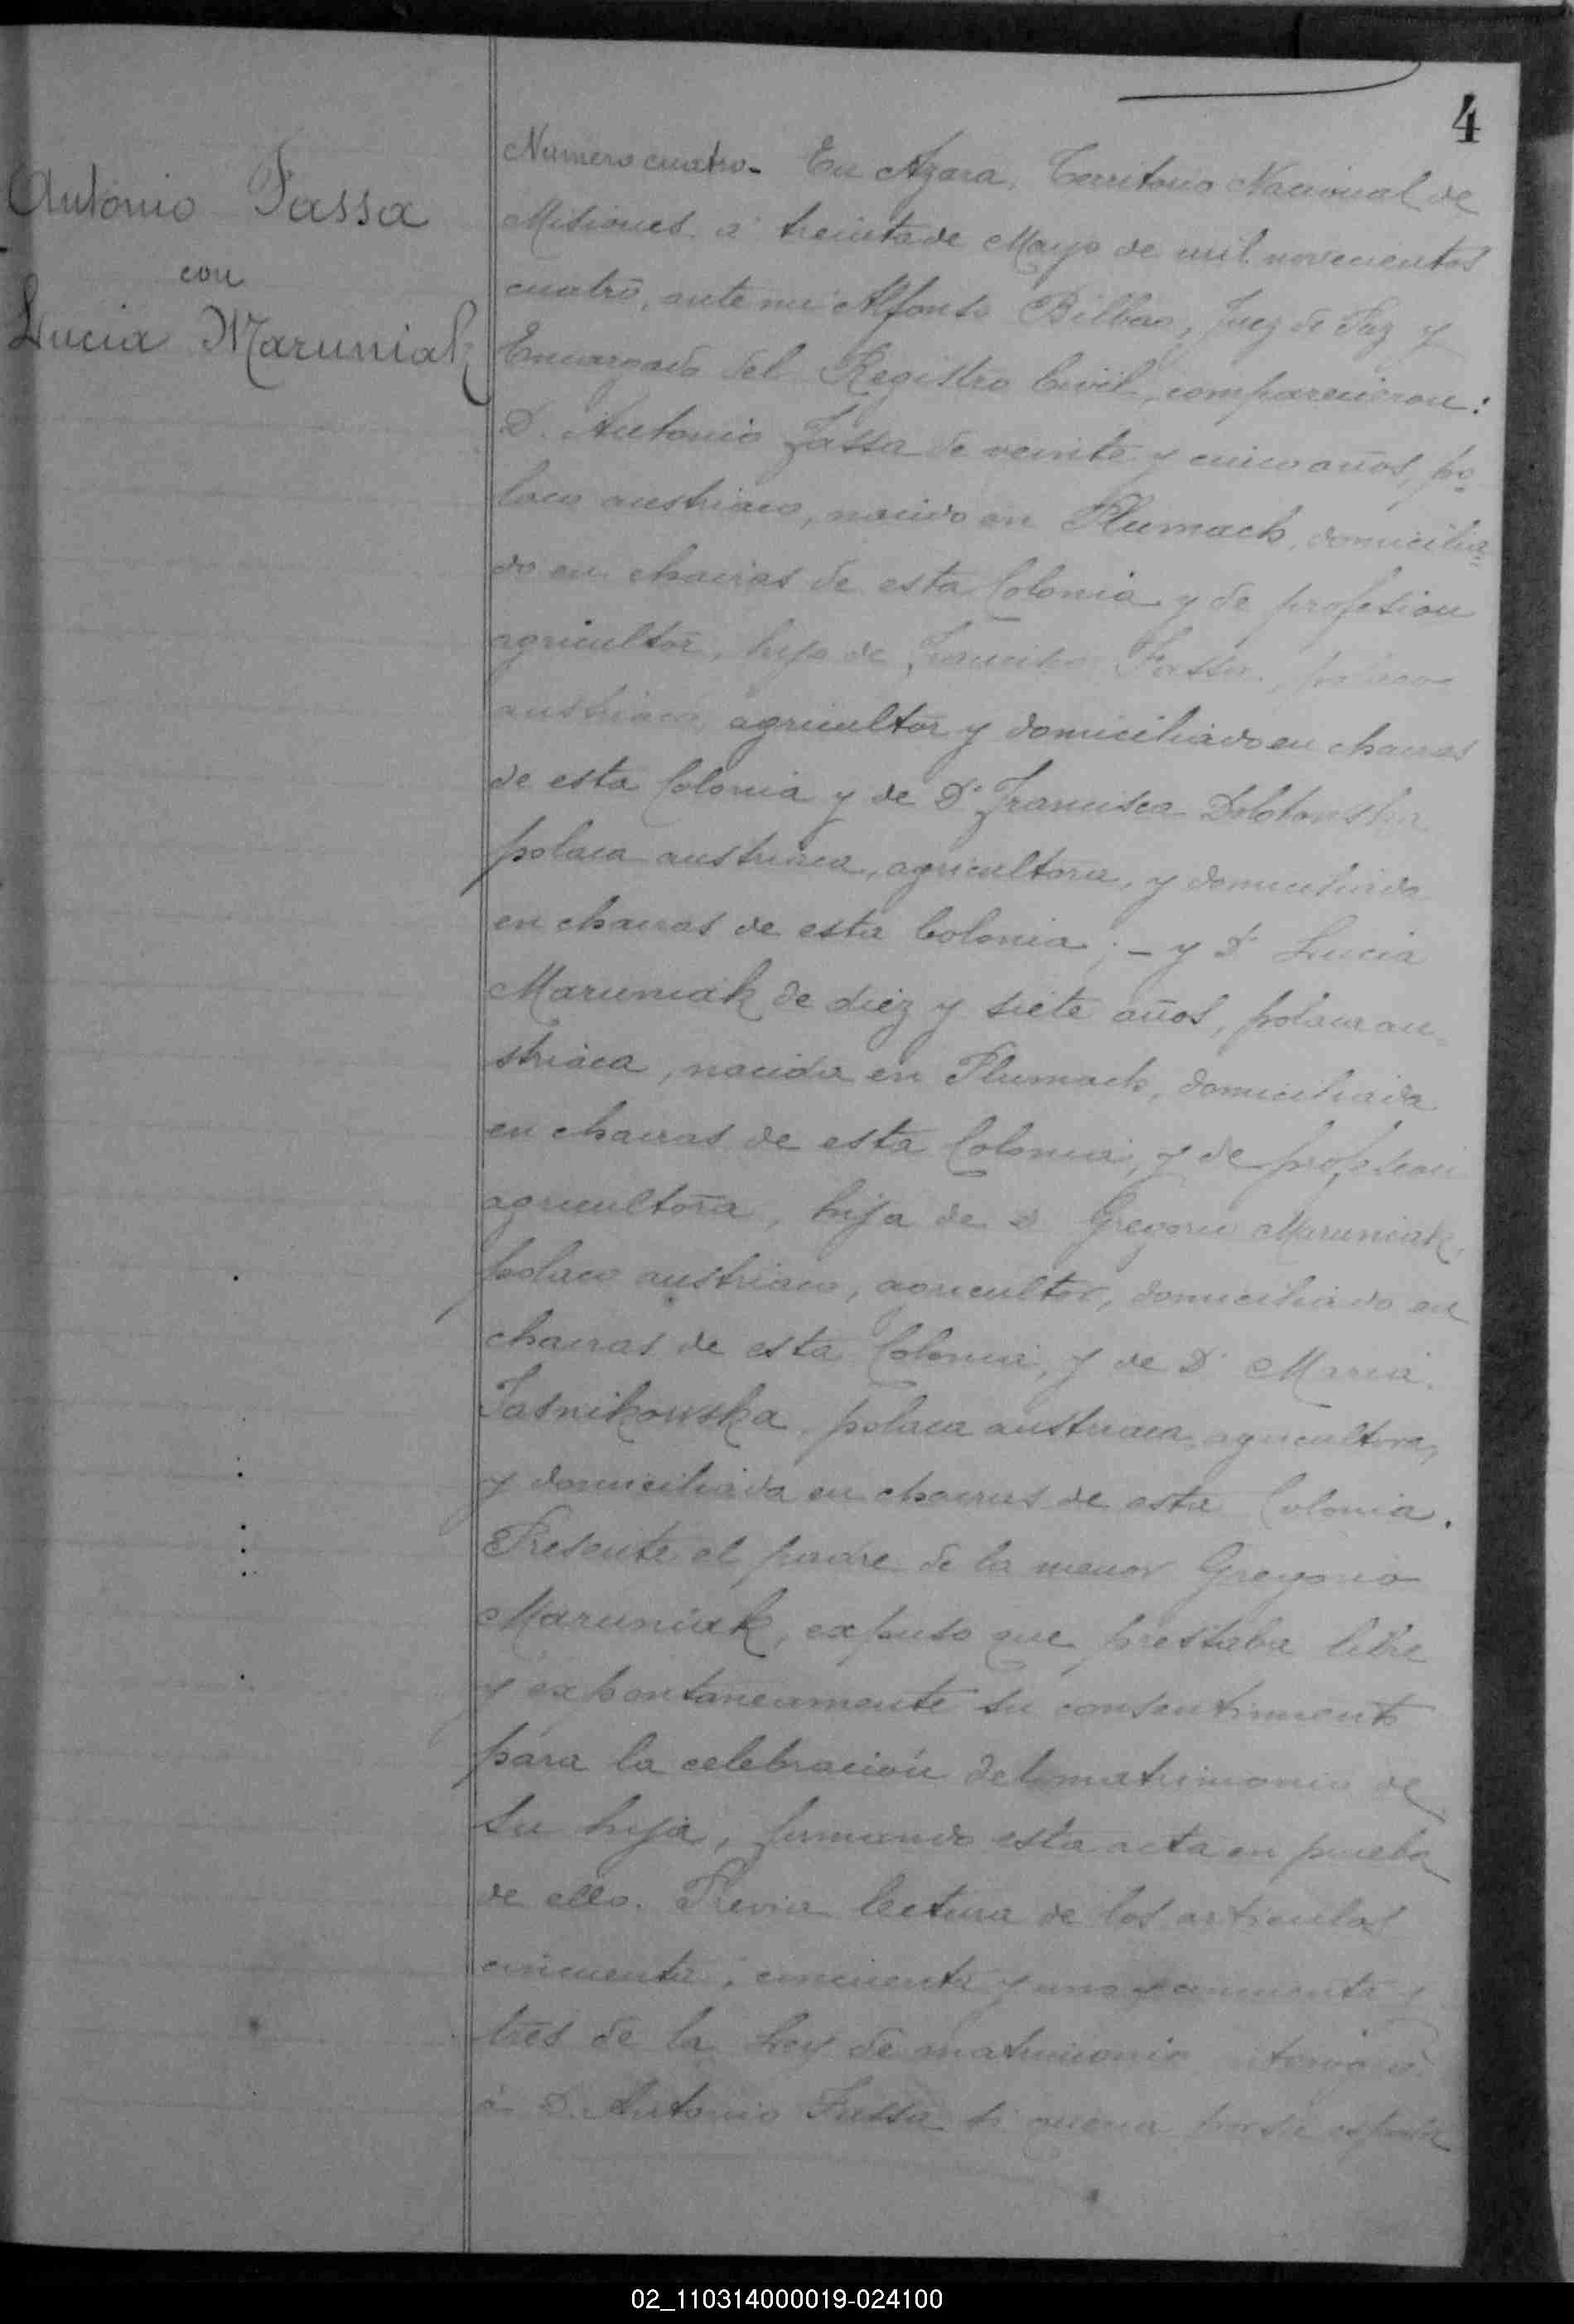 4
Antonio Fassa
con
Lucia Maruniak
Numero cuatro.- En Azara, Territorio Nacional de
Misiones á treinta de Mayo de mil novecientos
cuatro, ante mi Alfonso Bilbao, Juez de Paz y
Encargado del Registro Civil, comparecieron:
D. Antonio Fassa de veinte y cinco años, po-
laco austriaco, nacido en Tlumach, domicilia-
do en chacras de esta Colonia y de profesion
agricultor, hijo de Francisco Fassa, polaco
austriaco, agricultor y domiciliado en chacras
de esta Colonia y de Dª Francisca
polaca austriaca, agricultora, y domiciliada
en chacras de esta Colonia; - y Dª Lucia
Maruniak de diez y siete años, polaca au-
striaca, nacida en Tlumach, domiciliada
en chacras de esta Colonia, y de profesion
agricultora, hija de D. Gregorio Maruniak,
polaco austriaco, agricultor, domiciliado en
chacras de esta Colonia, y de Dª Maria
Jasnikowska, polaca austriaca, agricultora,
y domiciliada en chacras de esta Colonia.
Presente el padre de la menor Gregorio
Maruniak, expuso que prestaba libre
y expontaneamente su consentimiento
para la celebración del matrimonio de
su hija, firmando esta acta en prueba
de ello. Previa lectura de los articulos
cincuenta, cincuenta y uno y cincuenta y
tres de la Ley de matrimonio
á D. Antonio Fassa si queria por su esposa
02_110314000019-024100